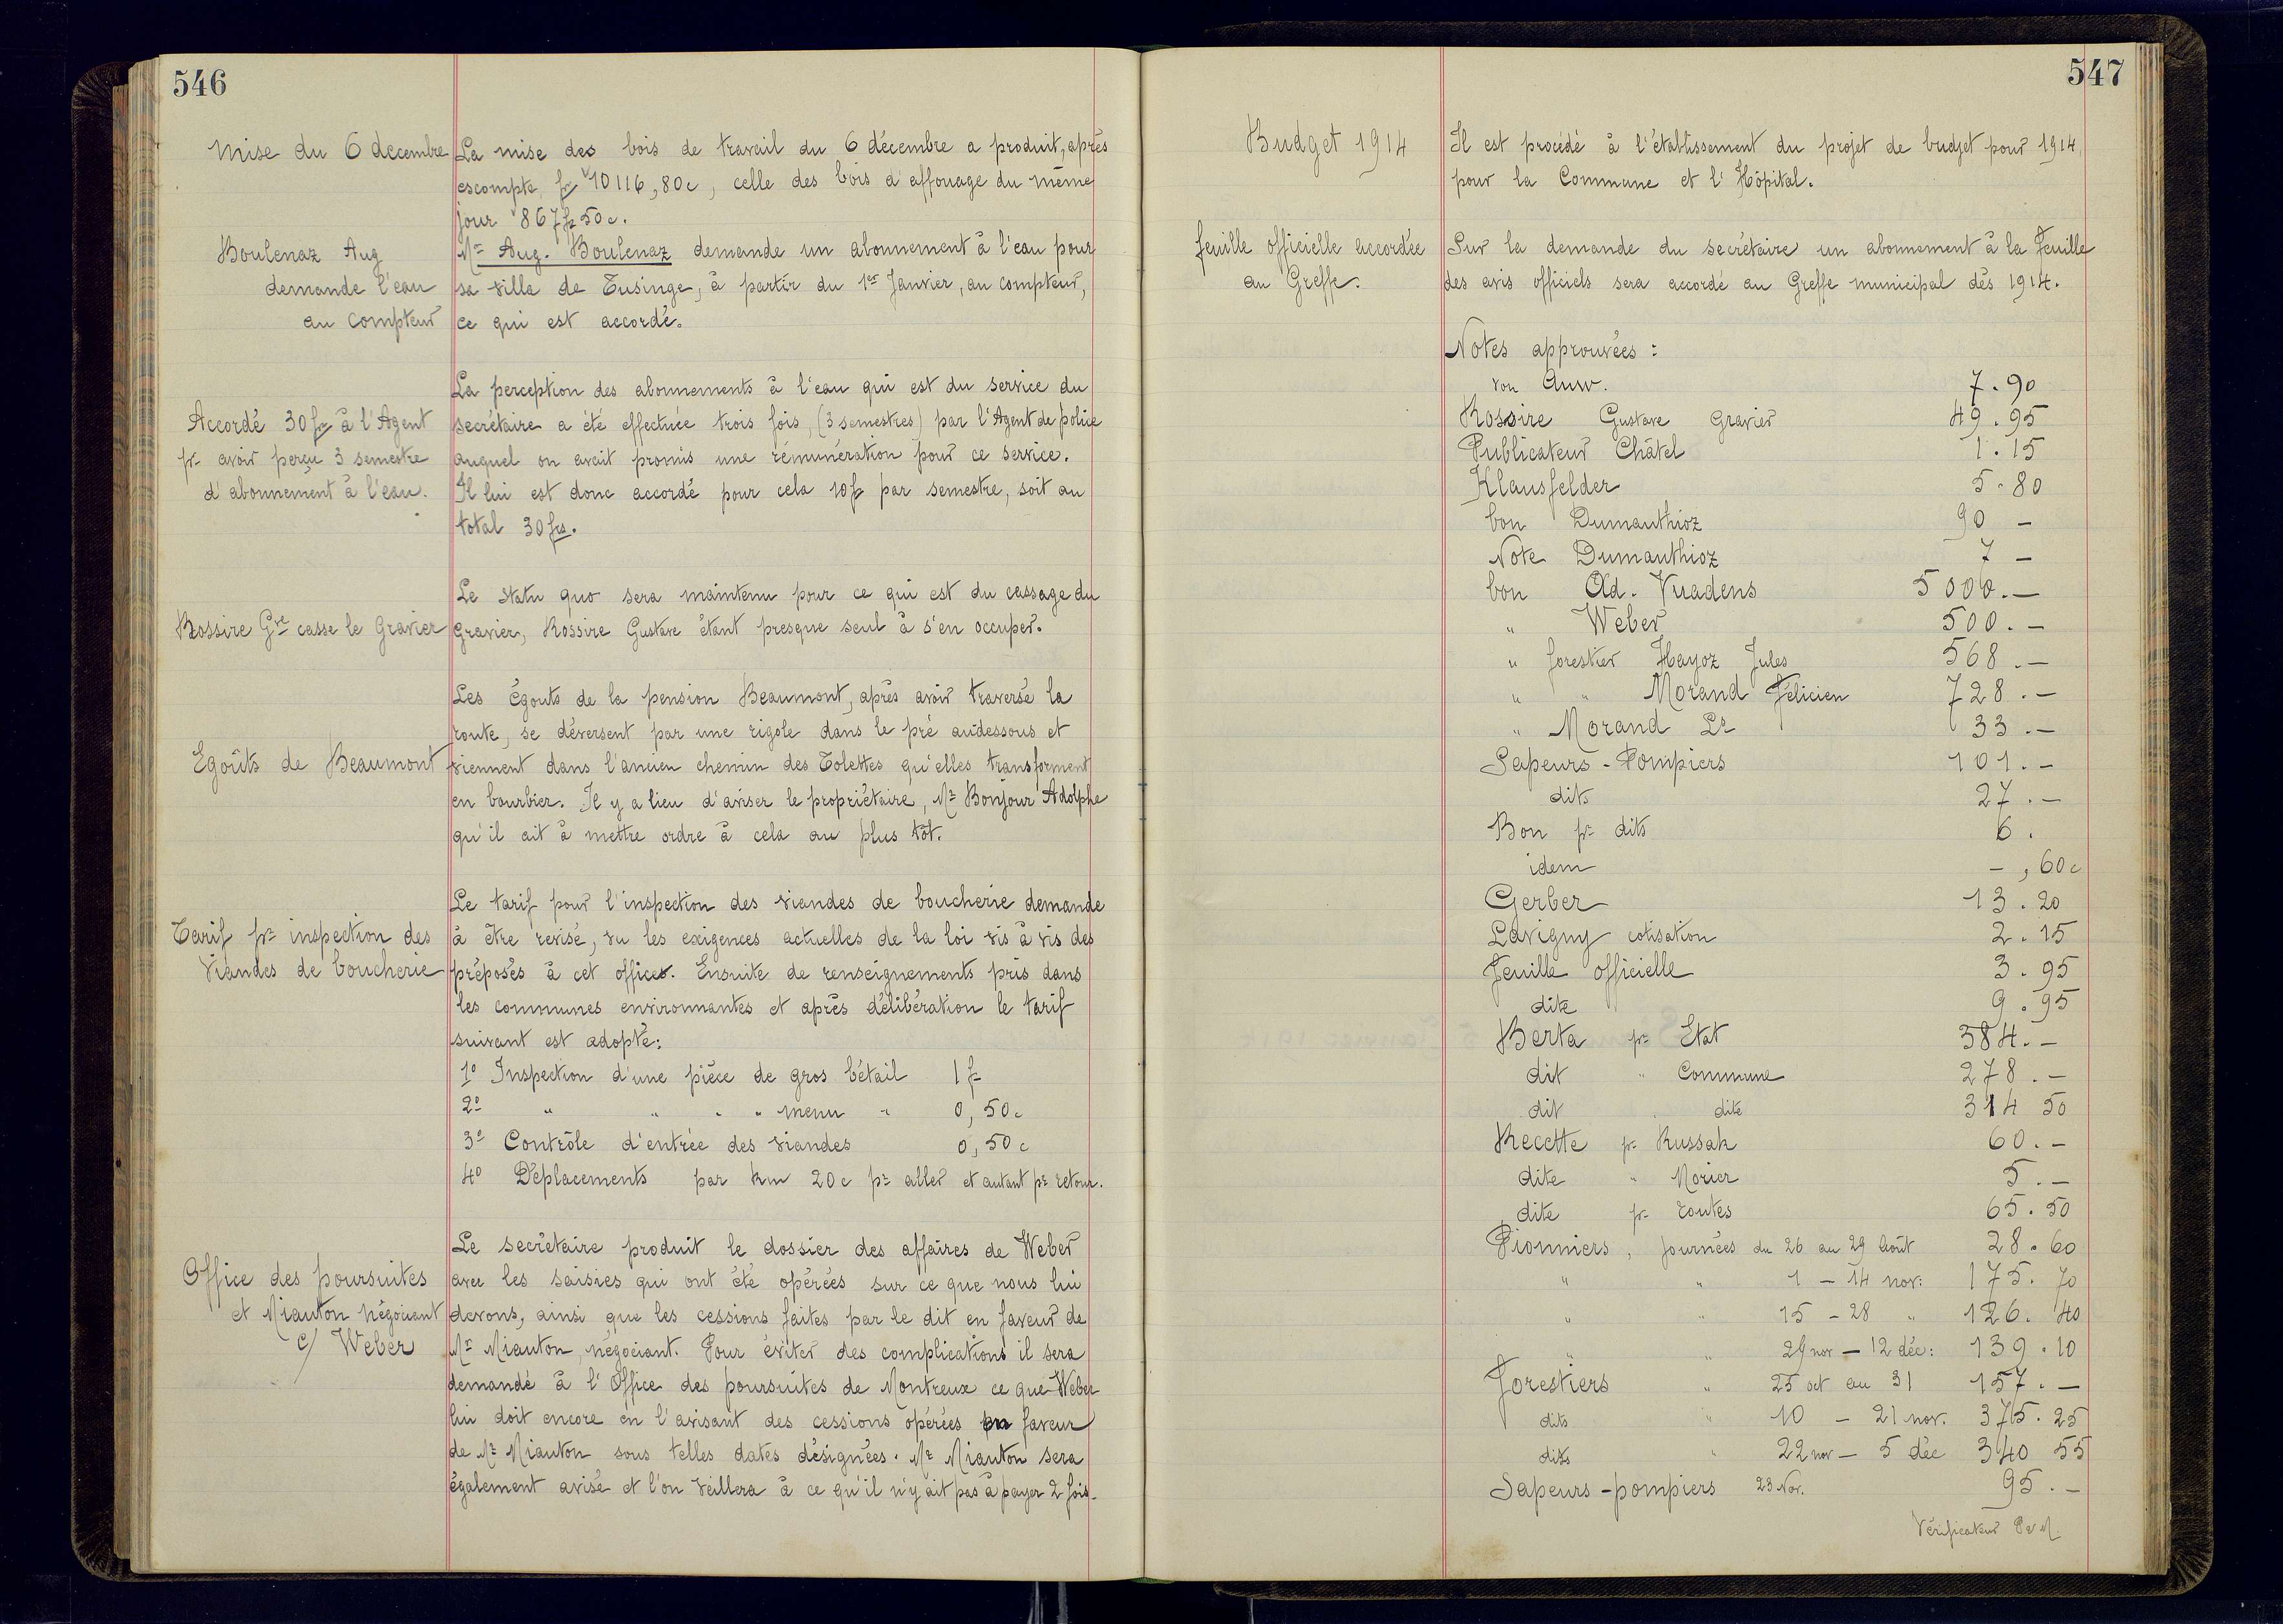 546
Mise du 6 decembre
La mise des bois de travail du 6 décembre a produit, après
escompte fr 10116,80c, celle des bois d'affouage du même
jour 867 fr 50 c.
Boulenaz Aug
demande l'eau
au compteur
Mr Aug. Boulenaz demande un abonnement à l'eau pour
sa villa de Tusinge, à partir du 1er Janvier, au compteur,
ce qui est accordé.
Accordé 30 fr à l'Agent
pr avoir perçu 3 semestre
d'abonnement à l'eau.
La perception des abonnements à l'eau qui est du service du
secrétaire a été effectuée trois fois, (3 semestres) par l'Agent de police
auquel on avait promis une rémunération pour ce service.
Il lui est donc accordé pour cela 10 fr par semestre, soit au
total 30 frs.
Rossire Gve casse le Gravier
Le statu quo sera maintenu pour ce qui est du cassage du
gravier, Rossire Gustave étant presque seul à s'en occuper.
Egoûts de Beaumont
Les égouts de la pension Beaumont, après avoir traversé la
route, se déversent par une rigole dans le pré audessous et
viennent dans l'ancien chemin des Colettes qu'elles transforment
en bourbier. Il y a lieu d'aviser le propriétaire, Mr Bonjour Adolphe
qu'il ait à mettre ordre à cela au plus tôt.
Tarif pr inspection des
viandes de boucherie
Le tarif pour l'inspection des viandes de boucherie demande
à être revisé, vu les exigences actuelles de la loi vis à vis des
préposés à cet office. Ensuite de renseignements pris dans
les communes environnantes et après délibération le tarif
suivant est adopté:
1o Inspection d'une pièce de gros bétail 1 fr
2o " " " " menu " 0,50c
3o Contrôle d'entrée des viandes 0,50c
4o Déplacements par km 20c pr aller et autant pr retour.
Office des poursuites
et Miauton négociant
c/ Weber
Le secrétaire produit le dossier des affaires de Weber
avec les saisies qui ont été opérées sur ce que nous lui
devons, ainsi que les cessions faites par le dit en faveur de
Mr Miauton, négociant. Pour éviter des complications il sera
demandé à l'Office des poursuites de Montreux ce que Weber
lui doit encore en l'avisant des cessions opérées en faveur
de Mr Miauton sous telles dates désignées. Mr Miauton sera
également avisé et l'on veillera à ce qu'il n'y ait pas à payer 2 fois.
547
Budget 1914
Il est procédé à l'établissement du projet de budjet pour 1914,
pour la Commune et l'Hôpital.
feuille officielle accordée
au Greffe.
Sur la demande du secrétaire un abonnement à la Feuille
des avis officiels sera accordé au Greffe municipal dès 1914.
Notes approuvées :
von Auw. 7.90
Rossire Gustave gravier 49.95
Publicateur Châtel 1.15
Klausfelder 5.80
bon Dumauthioz 90 —
Note Dumauthioz 7 —
bon Ad. Vuadens 5000.—
" Weber 500.—
" forestier Hayoz Jules 568.—
" " Morand Félicien 728.—
" Morand Ls 33.—
Sapeurs-Pompiers 101.—
dits 27.—
Bon pr dits 6.
idem —,60c
Gerber 13.20
Lavigny cotisation 2.15
Feuille officielle 3.95
dite 9.95
Berta pr Etat 384.—
dit " Commune 278.—
dit " dite 314 50
Recette pr Russak 60.—
dite " Morier 5.—
dite pr routes 65.50
Pionniers, journées du 26 au 29 Août 28.60
" " 1 — 14 nov: 175.70
" " 15 — 28 " 126.40
" " 29 nov — 12 déc: 139.10
Forestiers " 25 oct au 31 157.—
dits " 10 — 21 nov. 375.25
dits " 22 nov — 5 déc 340 55
Sapeurs-pompiers 23 Nov. 95.—
Vérificateur